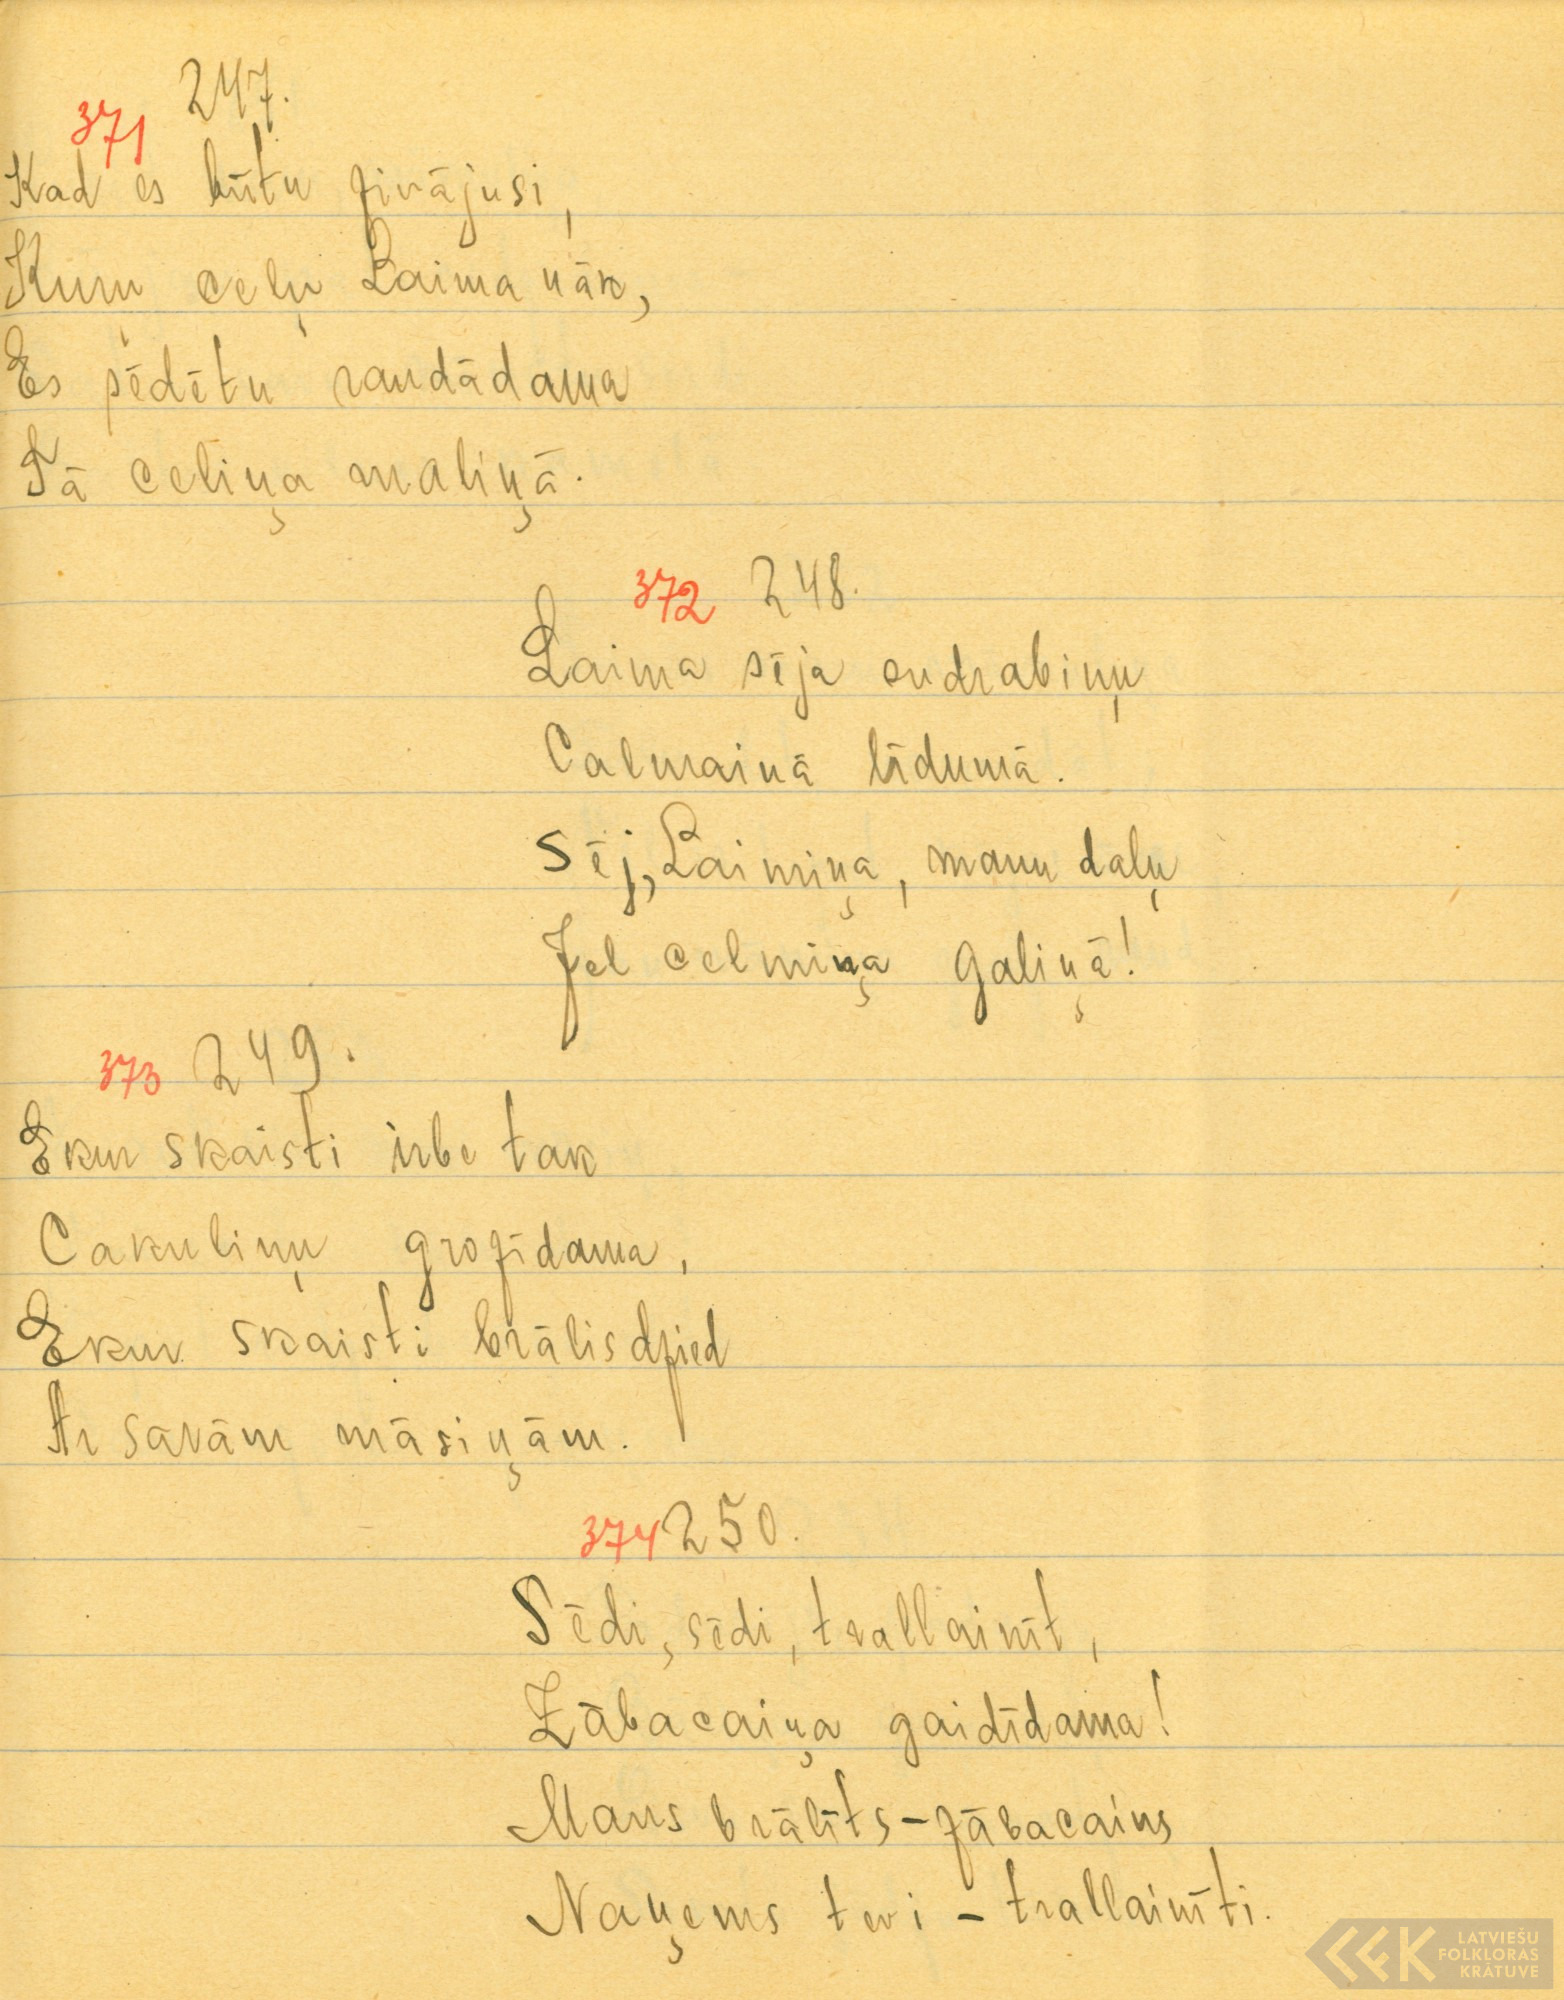 247.
371
Kad es būtu zinājusi,
Kuŗu ceļu Laima nāk,
Es sēdētu raudādama
Tā celiņa maliņā.
372 248.
Laima sēja sudrabiņu
Calmainā līdumā.
Sēj, Laimiņa, manu daļu
Jel celmiņa galiņā!
373 249.
Ekur skaisti irbe tak
Cakuliņu grozīdama,
Ekur skaisti brālis dzied
Ar savām māsiņām.
374 250.
Sēdi, sēdi, trallainīt,
Zābacaiņa gaidīdama!
Mans brālīts - zābacains
Naņems tevi - trallainīti.
LATVIEŠU
FOLKLORAS
KRĀTUVE